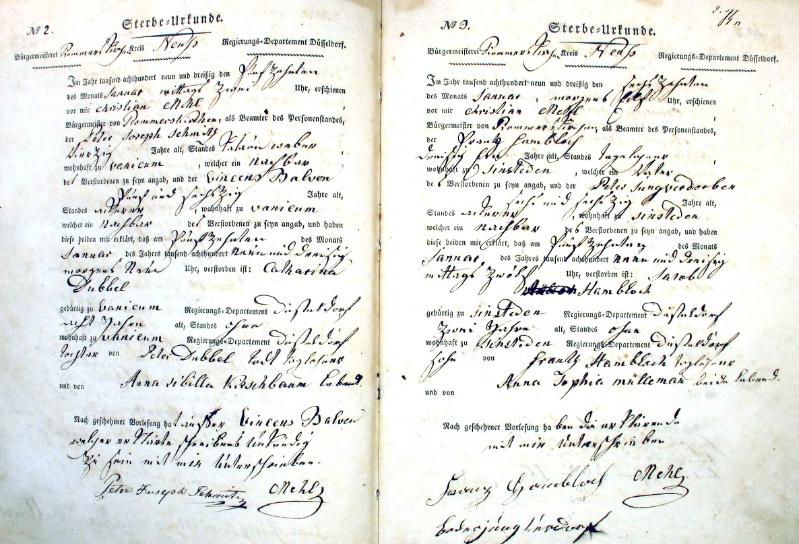 No 2. Sterbe-Urkunde.
Bürgermeisterei Rommerskirchen Kreis Neuß Regierungs-Departement Düsseldorf.
Im Jahr tausend achthundert neun und dreißig den fünfzehnten
des Monats Januar mittags zwei Uhr, erschienen
vor mir Christian Mehl
Bürgermeister von Rommerskirchen, als Beamter des Personenstandes,
der Peter Joseph Schmitz
vierzig Jahre alt, Standes
wohnhaft zu vanicum, welcher ein nachbar
des Verstorbenen zu seyn angab, und der Vincens Balven
fünf und sechszig Jahre alt,
Standes ackerer wohnhaft zu vanicum
welcher ein nachbar des Verstorbenen zu seyn angab, und haben
diese beiden mir erklärt, daß am fünfzehnten des Monats
Januar des Jahres tausend achthundert neun und dreißig
morgens neun Uhr, verstorben ist: Catharina
Dubbel
gebürtig zu vanicum Regierungs-Departement Düsseldorf
acht Jahren alt, Standes ohne
wohnhaft zu vanicum Regierungs-Departement Düsseldorf
tochter von Peter Dubbel taglöhner
und von Anna sibilla Kirschbaum
Nach geschehener Vorlesung hat außer Vincens Balven
welcher erklärte schreibens unkundig
zu sein mit mir unterschrieben.
Peter Joseph Mehl
No 3. Sterbe-Urkunde.
Bürgermeisterei Rommerskirchen Kreis Neuß Regierungs-Departement Düsseldorf.
Im Jahr tausend achthundert neun und dreißig den sechszehnten
des Monats Januar, morgens Uhr, erschienen
vor mir Christian Mehl
Bürgermeister von Rommerskirchen als Beamter des Personenstandes,
der Frantz Hambloch
dreisig Jahre alt, Standes tagelöhner
wohnhaft zu Sinsteden, welcher ein Vater
des Verstorbenen zu seyn angab, und der Peter
sechs und sechszig Jahre alt,
Standes ackerer wohnhaft zu sinsteden
welcher ein nachbar des Verstorbenen zu seyn angab, und haben
diese beiden mir erklärt, daß am fünfzehnten des Monats
Januar, des Jahres tausend achthundert neun und dreisig
mittags zwölf Uhr, verstorben ist: Jacob
Hambloch
gebürtig zu sinsteden Regierungs-Departement Düsseldorf
zwei Jahren alt, Standes ohne
wohnhaft zu sinsteden Regierungs-Departement Düsseldorf
Sohn von Frantz Hambloch taglöhner
und von Anna Sophia mülleman beide lebend.
Nach geschehener Vorlesung haben die erklärende
mit mir unterschrieben
Hambloch Mehl